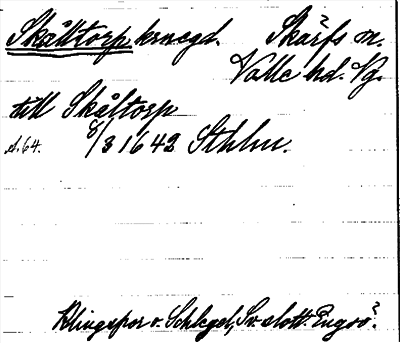 Skålltorp krnegd. Skärfs m.
Valle hd. Vg.
till Skåltorp
d. 64. 8/3 1642 Sthlm.
Klingspor o. Schlegel, Sv. slott. Engsö?